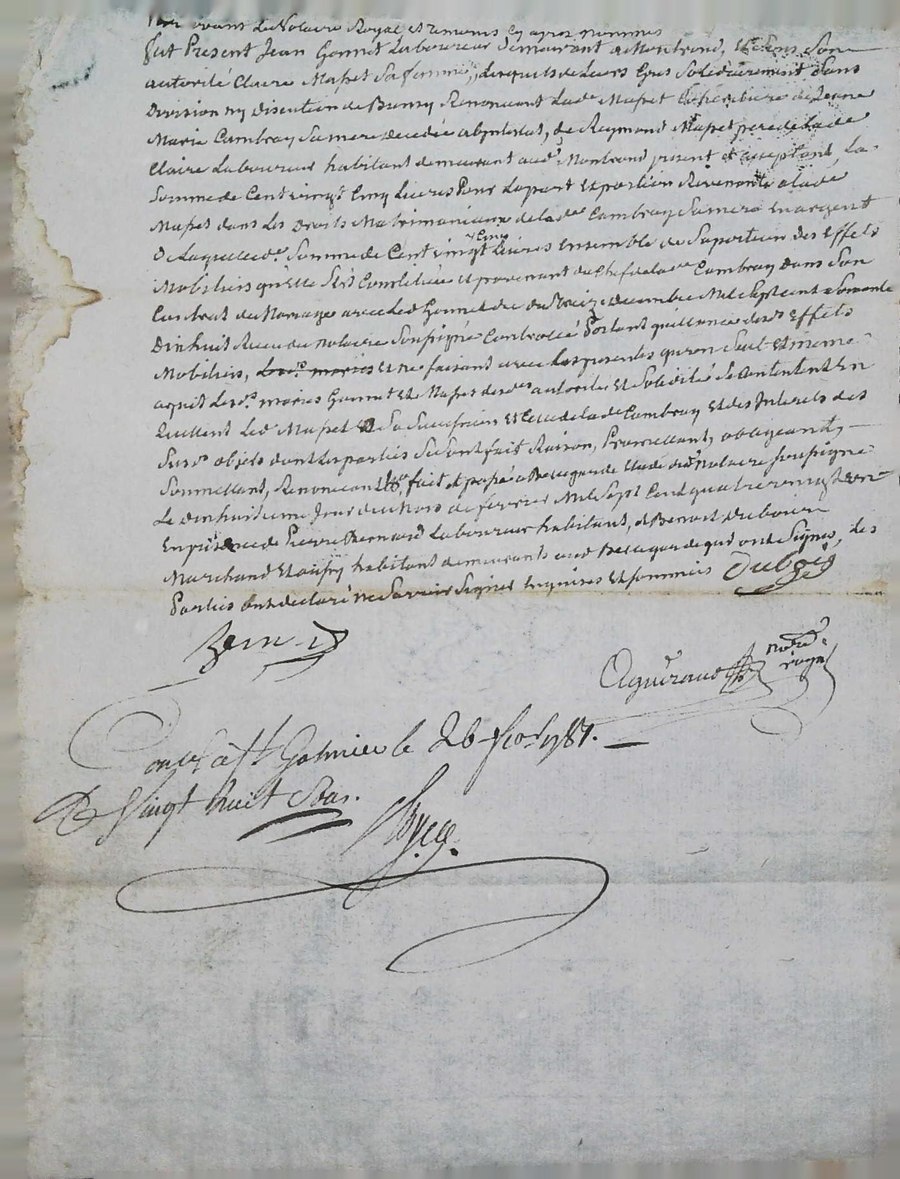 pardevant Le Notaire Royal et temoins cy apres nommés
fut Present Jean Gonnet Laboureur demeurant a Montrond, et sous Son
autorité Claire Mapet Sa femme, Lesquels de Leurs Grés Solidairement Sans
Division ny Discution de Biens y Renoncent Lade Mapet Cohéritiere de Jeanne
Marie Cambray Sa mere decedée abintestat, de Reymond Mapet pere de lade
Claire Laboureur habitant demeurant audt Montrond present et acceptant, La
Somme de Cent vingt Cinq Livres Pour La part et portion Revenante alade
Mapet dans Les Droits Matrimoniaux de lade Cambray Sa mere En argent
De Laquelle de Somme de Cent vingt Cinq Livres Ensemble de Sa portion des Effets
Mobiliers qu'elle Sest Constituée et provenant du Chef de lade Cambray dans Son
Contrat de Mariage avec led Gonnet du Treize Decembre Mil Sept cent Soixante
Dix huit Recu du notaire Soussigné Controllé Portant quittance desds Effets
Mobiliers, Lesds mariés Et ne faisant avec Les presentes qu'un Seul Et meme
acquit Lesds mariés Gonnet et Mapet desdes autorités Et Solidité Se Contentent En
Quittent Led Mapet Et Sa Succession Et Celle de lade Cambray Et des Interets des
Susds objets dont Les parties Se Sont fait Raison, Promettant, obligeant,
Soumettant, Renoncant &a, fait et passé a Bellegarde Etude dudt Notaire Soussigné
Le dix huitieme Jour du Mois de fevrier Mil Sept Cent quatre vingt Sept
En présence de Pierre Bernard Laboureur habitant, et Benoit Dubois
Marchand Et aussy habitant demeurants aud Bellegarde qui ont Signé, Les
Parties ont déclaré ne Savoir Signer Enquises Et Sommées Dubois
Bernard
Aguiraud notre royal
Conllé à St Galmier le 26 fev 1787.
R Vingt huit Sols.